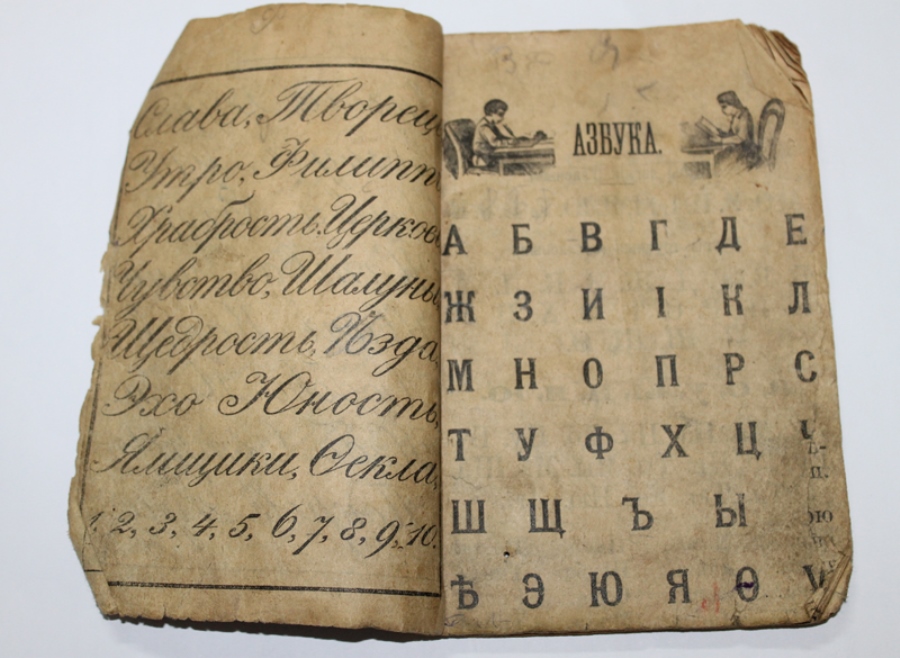 Слава, Творец
Утро, Филипп
Храбрость. Церков
Чувство, Шалун
Щедрость, Ѣзда.
Эхо Юность,
Ямщики, Ѳекла,
1, 2, 3, 4, 5, 6, 7, 8, 9, 10.
АЗБУКА.
А Б В Г Д Е
Ж З И І К Л
М Н О П Р С
Т У Ф Х Ц
Ш Щ Ъ Ы
Ѣ Э Ю Я Ѳ Ѵ